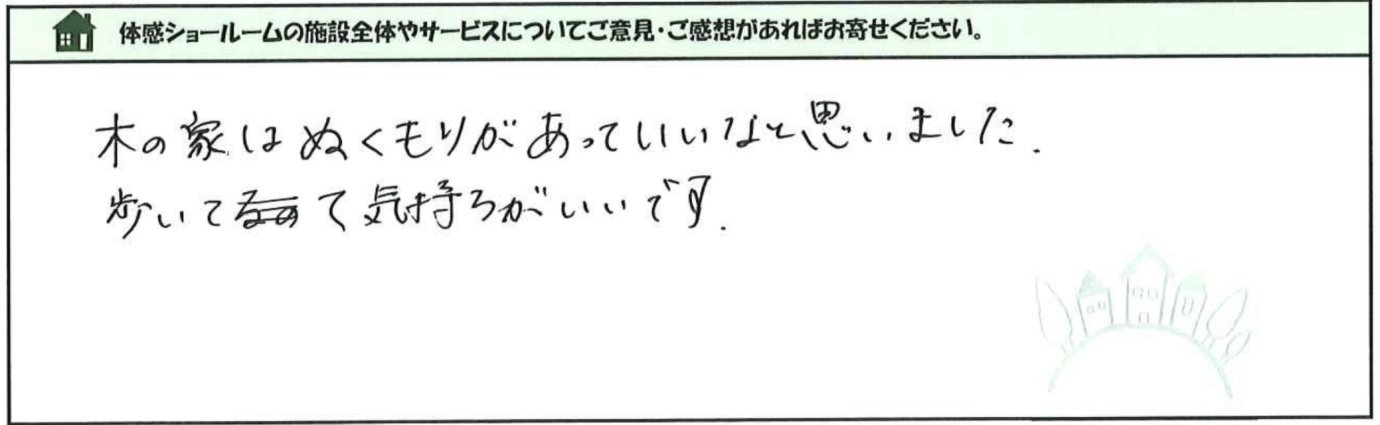 体感ショールームの施設全体やサービスについてご意見・ご感想があればお寄せください。
木の家はぬくもりがあっていいなと思いました.
歩いてて気持ちがいいです.